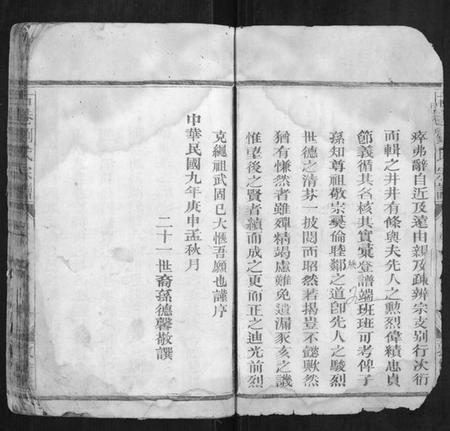 瘁弗辭自近及遠由親及疎辨宗支別行次衍
而輯之井井有條與夫先人之勲烈偉績忠貞
節義循其名核其實彙登譜端班班可考俾子
孫知尊祖敬宗彝倫睦鄰之道即先人之駿烈
世德之清芬一披閱而昭然若揭豈不懿歟然
猶有慊然者雖殫精竭慮難免遺漏豕亥之譏
惟望後之賢者續而成之更而正之迪光前烈
克繩祖武固已大愜吾願也謹序
中華民國九年庚申孟秋月
二十一世裔孫德馨敬譔